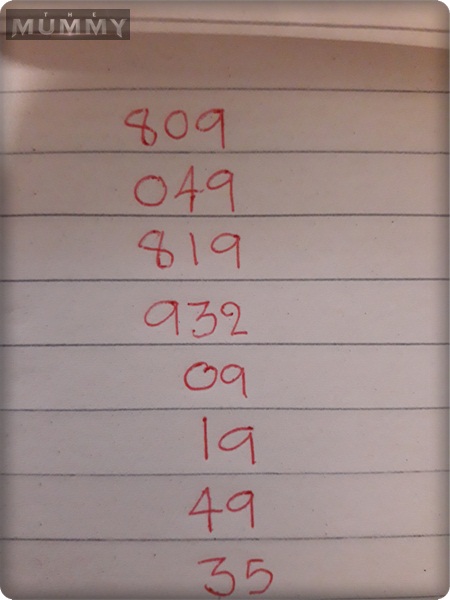 THE
MUMMY
809
049
819
932
09
19
49
35